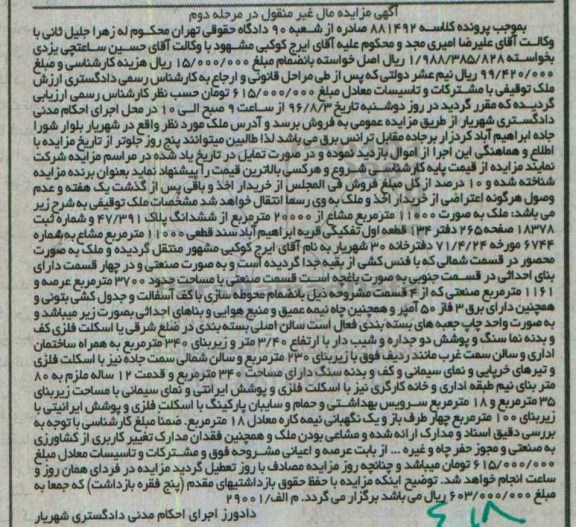 آگهی مزایده مال غیر منقول در مرحله دوم
بموجب پرونده کلاسه ۸۸۱۴۹۲ صادره از شعبه ۹۰ دادگاه حقوقی تهران محکوم له زهرا جلیل ثانی با
وکالت آقای علیرضا امیری مجد و محکوم علیه آقای ایرج کوکبی مشهود با وکالت آقای حسین ساعتچی یزدی
بخواسته ۱/۹۸۸/۳۸۵/۸۲۸ ریال اصل خواسته بانضمام مبلغ ۱۵/۰۰۰/۰۰۰ ریال هزینه کارشناسی و مبلغ
۹۹/۴۲۰/۰۰۰ ریال نیم عشر دولتی که پس از طی مراحل قانونی و ارجاع به کارشناس رسمی دادگستری ارزش
ملک توقیفی با مشترکات و تاسیسات معادل مبلغ ۶۱۵/۰۰۰/۰۰۰ تومان حسب نظر کارشناس رسمی ارزیابی
گردیده که مقرر گردید در روز دوشنبه تاریخ ۹۶/۸/۳ از ساعت ۹ صبح الی ۱۰ در محل اجرای احکام مدنی
دادگستری شهریار از طریق مزایده عمومی به فروش برسد و آدرس ملک مورد نظر واقع در شهریار بلوار شورا
جاده ابراهیم آباد کردزار برجاده مقابل ترانس برق می باشد لذا طالبین میتوانند پنج روز جلوتر از تاریخ مزایده با
اطلاع و هماهنگی این اجرا از اموال بازدید نموده و در صورت تمایل در تاریخ یاد شده در مراسم مزایده شرکت
نمایند مزایده از قیمت پایه کارشناسی شروع و هرکسی بالاترین قیمت را پیشنهاد نماید بعنوان برنده مزایده
شناخته شده و ۱۰ درصد از کل مبلغ فروش فی المجلس از خریدار اخذ و باقی پس از گذشت یک هفته و عدم
وصول هرگونه اعتراضی از خریدار اخذ و ملک به وی رسما انتقال خواهد شد مشخصات ملک توقیفی به شرح زیر
می باشد: ملک به صورت ۱۱۰۰۰ مترمربع مشاع از ۲۰۰۰۰ مترمربع از ششدانگ پلاک ۴۷/۳۹۱ و شماره ثبت
۱۸۳۷۸ صفحه ۲۶۵ دفتر ۱۳۴ قطعه اول تفکیکی قریه ابراهیم آباد سند قطعی ۱۱۰۰۰ مترمربع مشاع به شماره
۶۷۴۴ مورخه ۷۱/۴/۲۴ دفترخانه ۳۰ شهریار به نام آقای ایرج کوکبی مشهور منتقل گردیده و ملک به صورت
محصور در قسمت شمالی که با فنس کشی از بقیه جدا گردیده است و به صورت صنعتی و در چهار قسمت دارای
بنای احداثی در قسمت جنوبی به صورت باغچه است قسمت صنعتی با مساحت حدود ۳۷۰۰ مترمربع عرصه و
۱۱۶۱ مترمربع صنعتی که از ۴ قسمت مشروحه ذیل بانضمام محوطه سازی با کف آسفالت و جدول کشی بتونی و
همچنین دارای برق ۳ فاز ۵۰ آمپر و همچنین چاه نیمه عمیق و منبع هوایی و بناهای احداثی بصورت زیر میباشد و
به صورت واحد چاپ جعبه های بسته بندی فعال است سالن اصلی بسته بندی در ضلع شرقی با اسکلت فلزی کف
و بدنه نما سنگ و پوشش دو جداره و شیب دار با ارتفاع ۳/۴۰ متر و زیربنای ۳۴۰ مترمربع به همراه ساختمان
اداری و سالن سمت غرب مانند ردیف فوق با زیربنای ۲۳۰ مترمربع و سالن شمالی سمت جاده نیز با اسکلت فلزی
و تیرهای خرپایی و نمای سیمانی و کف و بدنه سنگ دارای مساحت ۳۴۰ مترمربع و قدمت ۱۲ ساله ملزم به ۸۰
متر بنای نیم طبقه اداری و خانه کارگری نیز با اسکلت فلزی و پوشش ایرانتی و نمای سیمانی با مساحت زیربنای
۳۵ مترمربع و ۱۸ مترمربع سرویس بهداشتی و حمام و سایبان پارکینگ با اسکلت فلزی و پوشش ایرانیتی با
زیربنای ۱۰۰ مترمربع چهار طرف باز و یک نگهبانی نیمه کاره معادل ۱۸ مترمربع. ضمنا مبلغ کارشناسی با توجه به
بررسی دقیق اسناد و مدارک ارائه شده و مشاعی بودن ملک و همچنین فقدان مدارک تغییر کاربری از کشاورزی
به صنعتی و مجوز حفر چاه و غیره ... از بابت عرصه و اعیانی مشروحه فوق و مشترکات و تاسیسات معادل مبلغ
۶۱۵/۰۰۰/۰۰۰ تومان میباشد و چنانچه روز مزایده مصادف با روز تعطیل گردید مزایده در فردای همان روز و
ساعت انجام خواهد شد. توضیح اینکه مزایده با حفظ حقوق بازداشتیهای مقدم (پنج فقره بازداشت) که جمعا به
مبلغ ۶۰۳/۰۰۰/۰۰۰ ریال می باشد برگزار می گردد. م الف/۲۹۰۰۱
دادورز اجرای احکام مدنی دادگستری شهریار